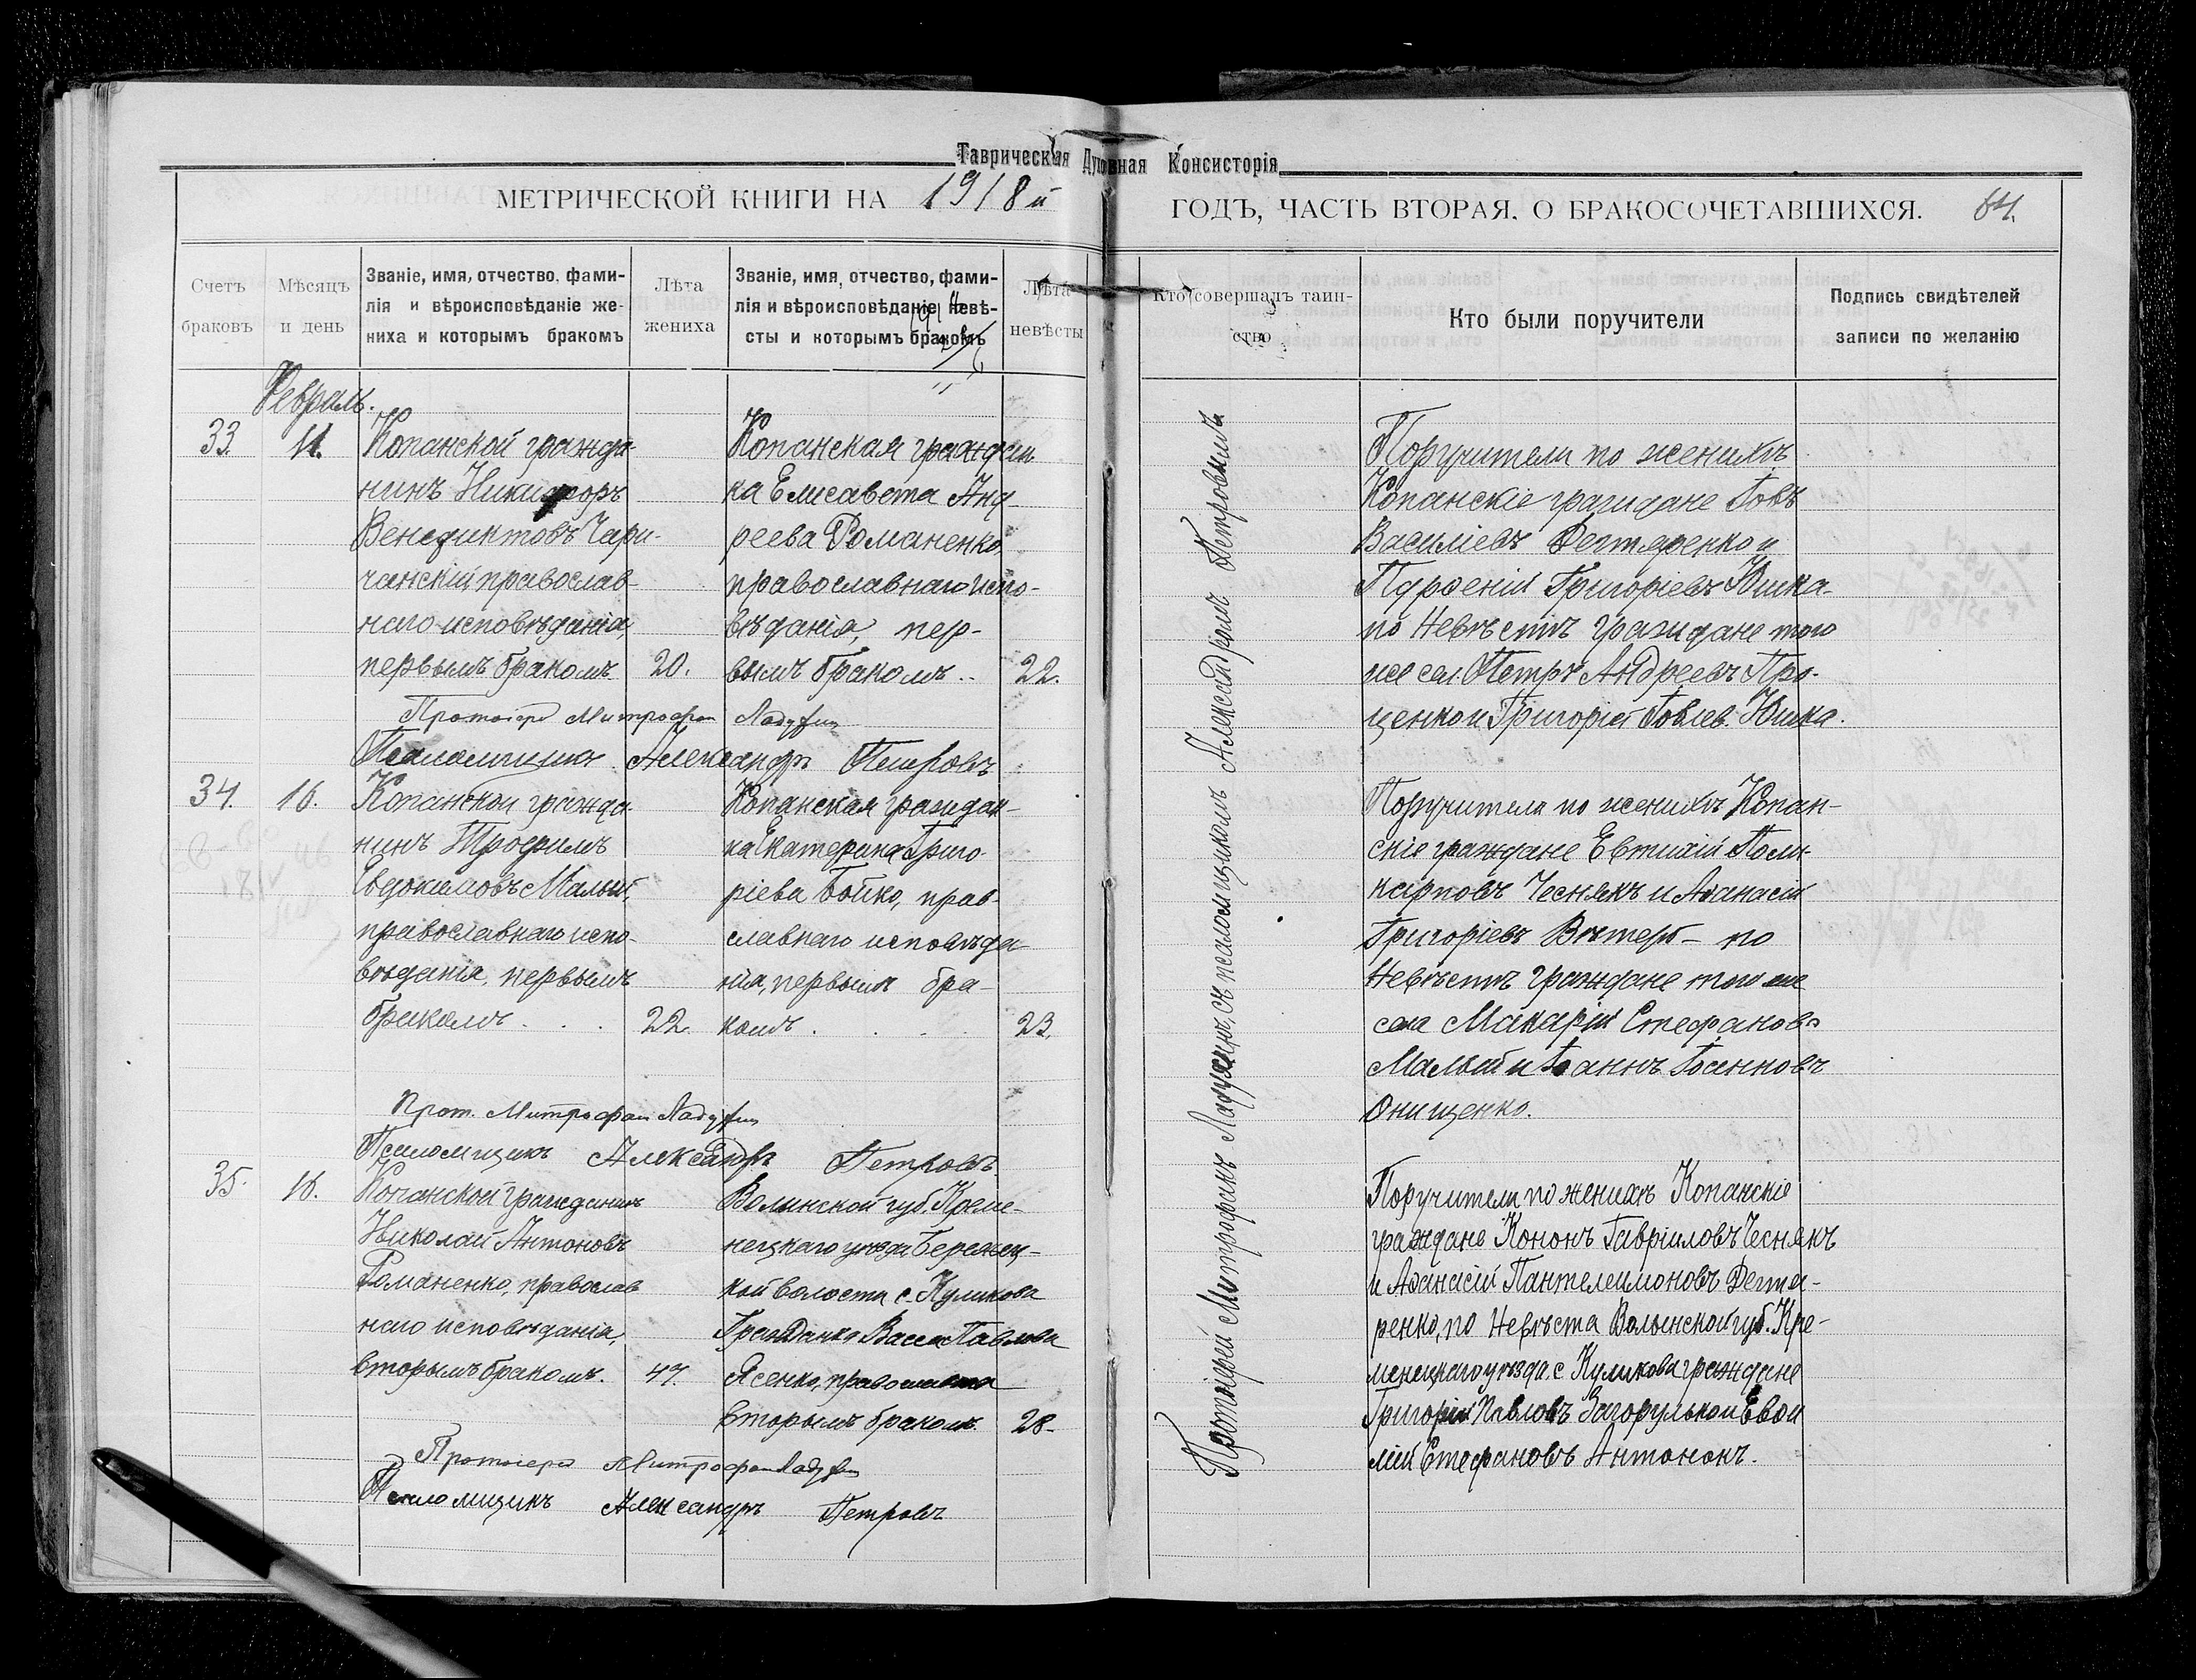 Таврическая Духовная Консисторія
МЕТРИЧЕСКОЙ КНИГИ НА 1918й
ГОДЪ, ЧАСТЬ ВТОРАЯ, О БРАКОСОЧЕТАВШИХСЯ. 64.
Счетъ
браковъ
Мѣсяцъ
и день
Званіе, имя, отчество, фами-
лія и вѣроисповѣданіе же-
ниха и которымъ бракомъ
Лѣта
жениха
Званіе, имя, отчество, фами-
лія и вѣроисповѣданіе невѣ-
сты и которымъ бракомъ
Лѣта
невѣсты
Кто совершалъ таин-
ство
Кто были поручители
Подпись свидѣтелей
записи по желанію
Февраль.
33. 11.
Копанской гражда-
нинъ Никифоръ
Венедиктовъ Чари-
чанскій православ-
наго исповѣданія,
первымъ бракомъ 20.
Копанская граждан
ка Елисавета Анд-
реева Романенко,
православнаго испо-
вѣданія, пер-
вымъ бракомъ.. 22.
Протоіерей Митрофан Ладухин
Псаломщикъ Александръ Петровъ
Поручители по женихѣ
Копанскіе граждане Іовъ
Василіевъ Дегтяренко и
Парфеній Григоріевъ Юшка-
по Невѣстѣ граждане того
же сел. Петръ Андреевъ Про-
ценко и Григорій Іовлев. Юшка.
34. 16.
Копанской гражда-
нинъ Трофимъ
Евдокимовъ Малый,
православнаго испо-
вѣданія, первымъ
бракомъ . . . 22.
Копанская граждан-
ка Екатерина Григо-
ріева Бойко, прав-
славнаго исповѣда-
нія, первымъ бра-
комъ . . . 23.
Прот. Митрофан Ладухин
Псаломщикъ Александръ Петровъ
Поручители по женихѣ Копан-
скіе граждане Евтихій Поли-
карповъ Чеснякъ и Аѳанасій
Григоріевъ Вѣтеръ - по
Невѣстѣ граждане того же
села Макарій Стефановъ
Малый и Іоаннъ
Онищенко.
35. 16.
Копанской гражданинъ
Николай Антоновъ
Романенко, православ
наго исповѣданія,
вторымъ бракомъ. 47.
Волынской губ. Креме-
нецкаго уѣзда Бережец-
кой волости с. Куликова
Гражданка Васса Павлова
Ясенко,
вторымъ бракомъ. 28.
Протоіерей Митрофан Ладухин
Псаломщикъ Александръ Петровъ
Поручители по женихѣ Копанскіе
граждане Кононъ Гавріиловъ Чеснякъ
и Аѳанасій Пантелеимоновъ Дегтя-
ренко, по Невѣста Волынской губ. Кре-
менецкаго уѣзда. с Куликова граждане
Григорій Павловъ Загорулько и Евѳи
мій Стефановъ Антонокъ.
Протоіерей Митрофанъ Ладухинъ, съ псаломщикомъ Александромъ Петровымъ